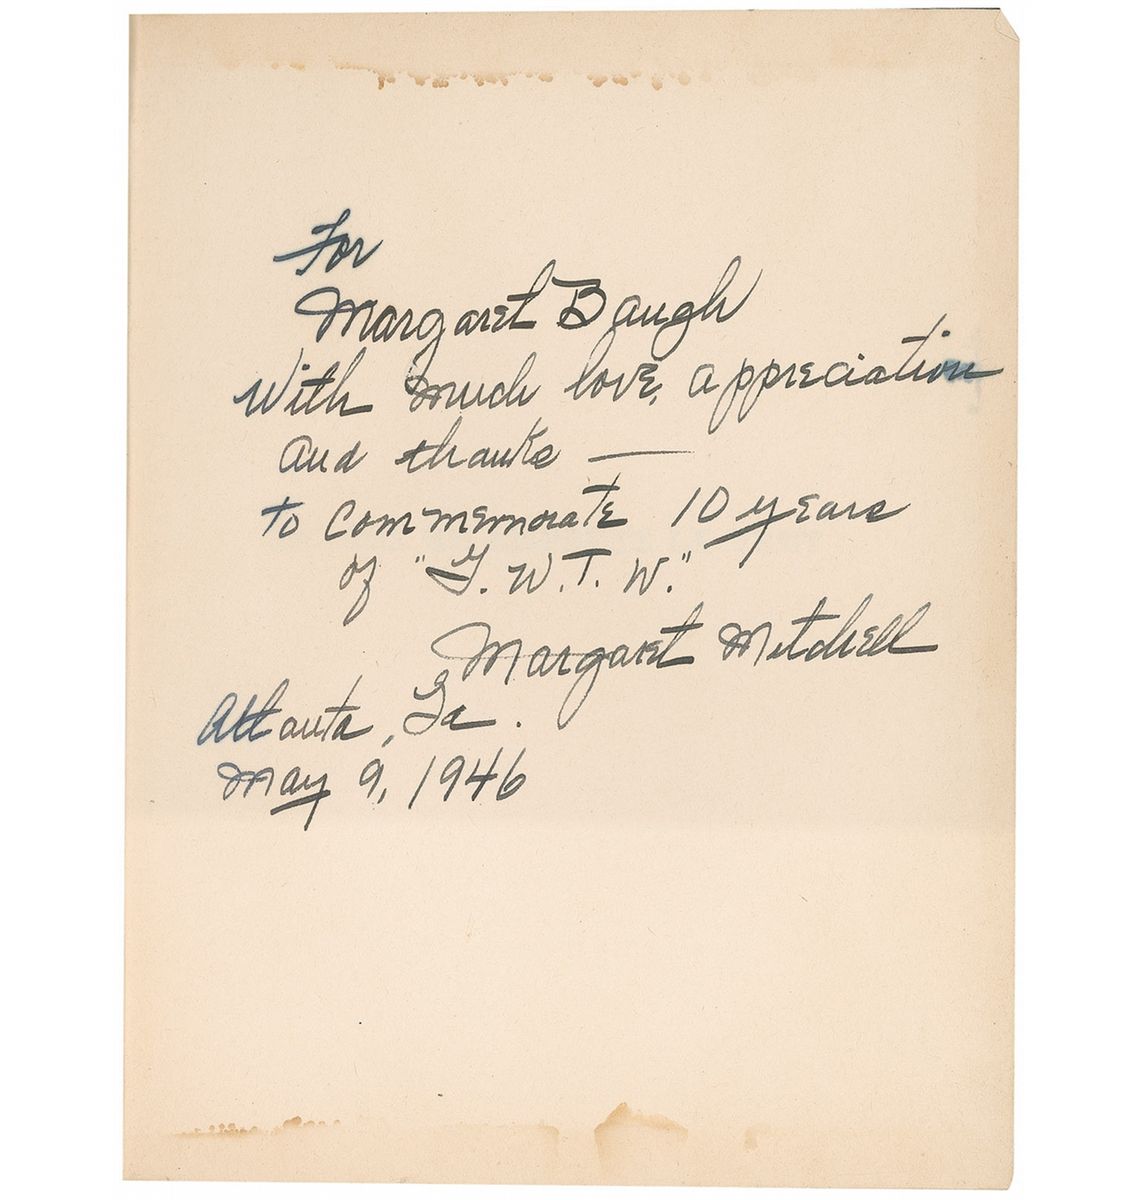 For
Margaret Baugh
With much love, appreciation
and thanks —
to commemorate 10 years
of "G. W. T. W."
Margaret Mitchell
Atlanta, Ga.
May 9, 1946